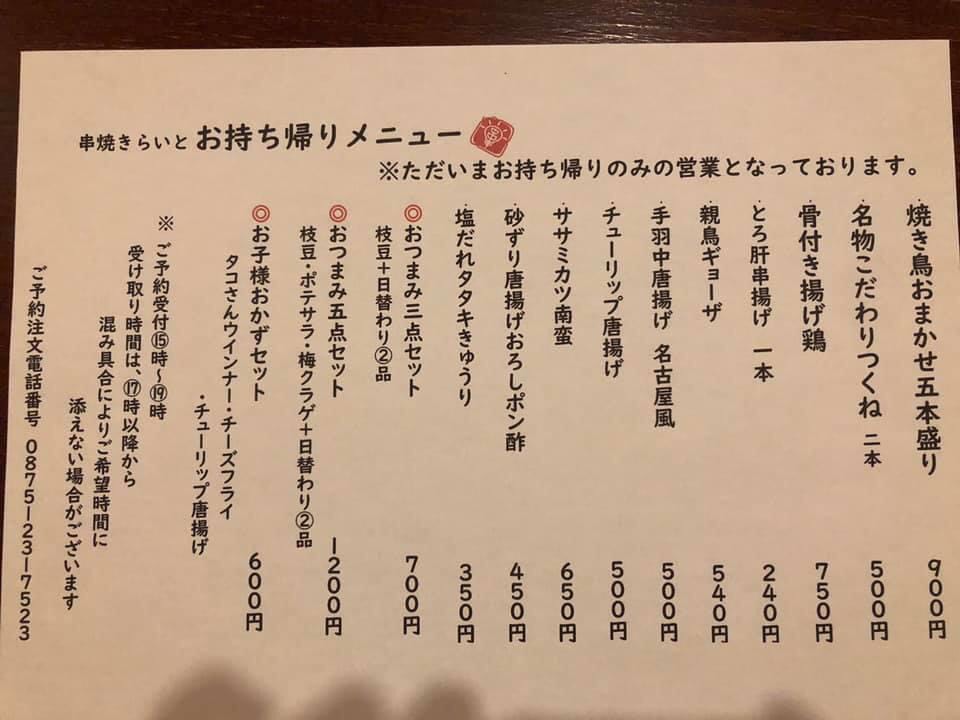 串焼きらいと お持ち帰りメニュー
※ただいまお持ち帰りのみの営業となっております。
・焼き鳥おまかせ五本盛り 900円
・名物こだわりつくね 二本 500円
・骨付き揚げ鶏 750円
・とろ肝串揚げ 一本 240円
・親鳥ギョーザ 540円
・手羽中唐揚げ 名古屋風 500円
・チューリップ唐揚げ 500円
・ササミカツ南蛮 650円
・砂ずり唐揚げおろしポン酢 450円
・塩だれタタキきゅうり 350円
◎おつまみ三点セット 700円
枝豆+日替わり②品
◎おつまみ五点セット 1200円
枝豆・ポテサラ・梅クラゲ+日替わり②品
◎お子様おかずセット 600円
タコさんウインナー・チーズフライ
・チューリップ唐揚げ
※ご予約受付⑮時~⑲時
受け取り時間は、⑰時以降から
混み具合によりご希望時間に
添えない場合がございます
ご予約注文電話番号 0875-23-7523